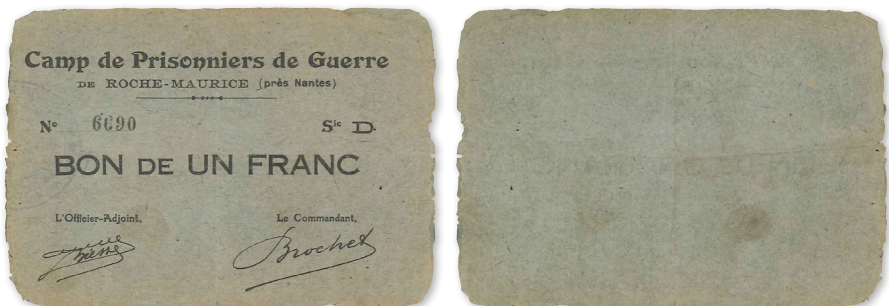 Camp de Prisonniers de Guerre
DE ROCHE-MAURICE (près Nantes)
Nº 6690 Sie D.
BON DE UN FRANC
L'Officier-Adjoint, Le Commandant,
Brochet